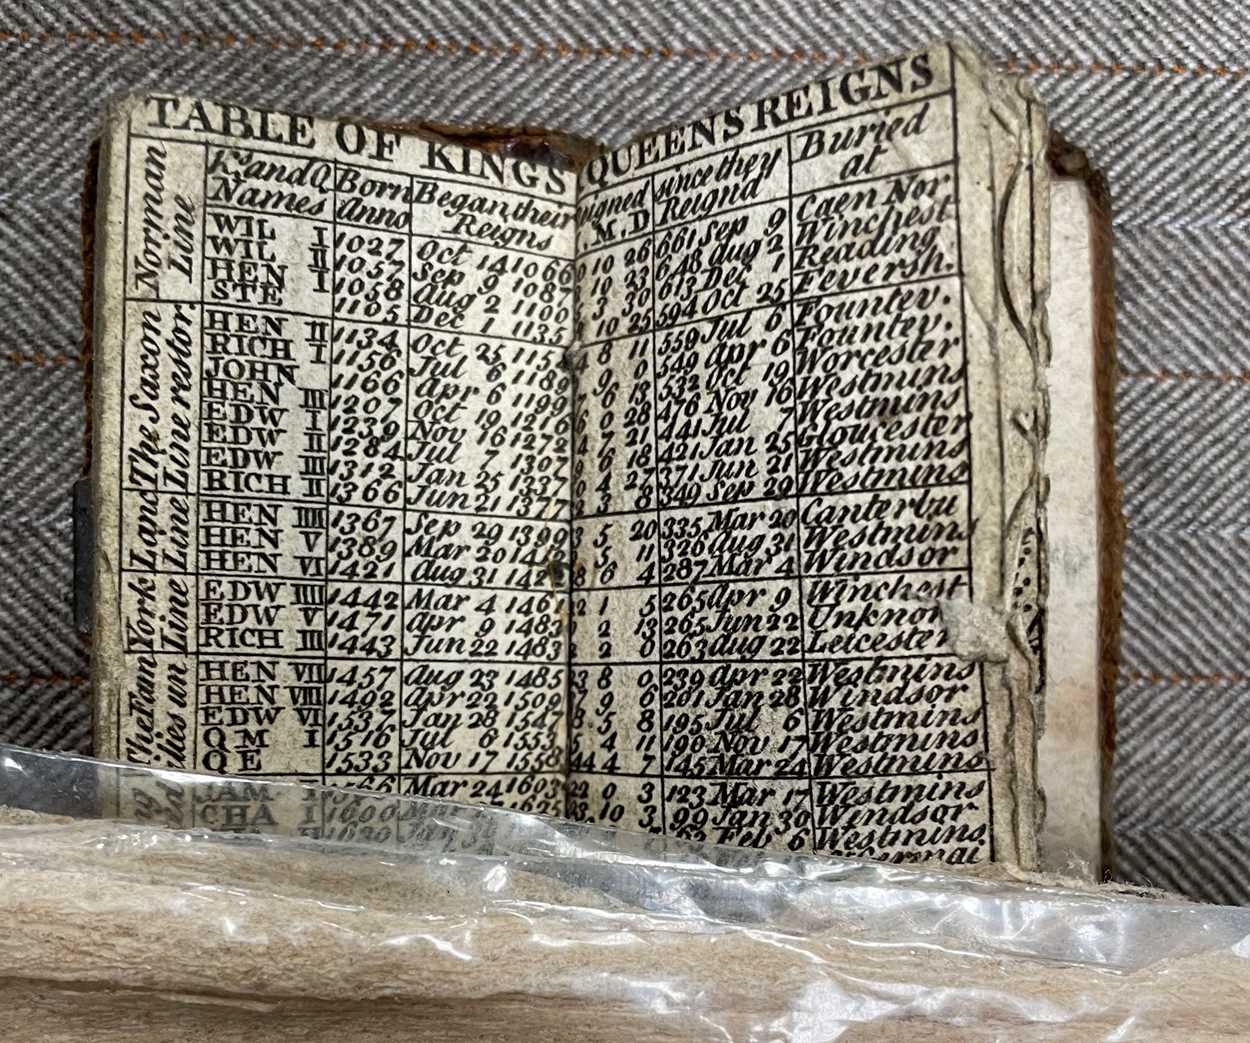 TABLE OF KINGS QUEENS REIGNS
Norman Line
Ks and Q Names Born Anno Began their Reigns igned . M. D since they Reignd Buried at
WIL I 1027 Oct 14 1066 10 26 661 Sep 9 Caen Nor
WIL II 1057 Sep 9 1087 10 23 648 aug 2 Winchest
HEN I 1058 aug 2 1100 3 30 613 Dec 1 Reading
STE 1105 Dec 1 1135 10 25 594 Oct 25 Feversh.
The Saxon Line restor.
HEN II 1134 Oct 25 115 8 11 559 Jul 6 Fountev.
RICH I 1156 Jul 6 1189 9 0 549 apr 6 Fountev.
JOHN 1166 apr 6 1199 6 13 532 Oct 19 Worcester
HEN III 1207 Oct 19 1216 0 28 476 Nov 16 Westmins
EDW I 1239 Nov 16 1272 7 21 441 Jul 7 Westmins
EDW II 1284 Jul 7 1307 6 18 421 Jan 25 Gloucester
EDW III 1312 Jan 25 1337 4 27 371 Jun 21 Westmins
RICH II 1366 Jun 21 1377 3 8 349 Sep 29 Westmins
Lanc Line
HEN IIII 1367 Sep 29 1399 5 20 335 Mar 20 Canterbu
HEN V 1389 Mar 20 1412 5 11 326 aug 31 Westmin
HEN VI 1421 aug 31 142 6 4 287 Mar 4 Windsor
York Line
EDW IIII 1442 Mar 4 1461 22 1 5 265 apr 9 Winchest
EDW V 1471 apr 9 1483 2 13 265 Jun 22 Unknon
RICH III 1443 Jun 22 1483 2 2 0 263 aug 22 Leicester
The Fam ilies un
HEN VII 1457 aug 23 1485 23 8 0 239 apr 22 Westmins
HEN VIII 1492 apr 22 1509 7 9 6 201 Jan 28 Windsor
EDW VI 1537 Jan 28 1547 5 8 195 Jul 6 Westmins
Q M I 1516 Jul 6 1553 5 4 11 190 Nov 17 Westmins
Q E 1533 Nov 17 1558 44 4 7 145 Mar 24 Westmins
JAM I 1566 Mar 24 1603 22 0 3 123 Mar 17 Westmins
CHA I 1600 1625 23 10 3 99 Jan 30 Windsor
1630 Jan 30 Feb 6 Westmins.